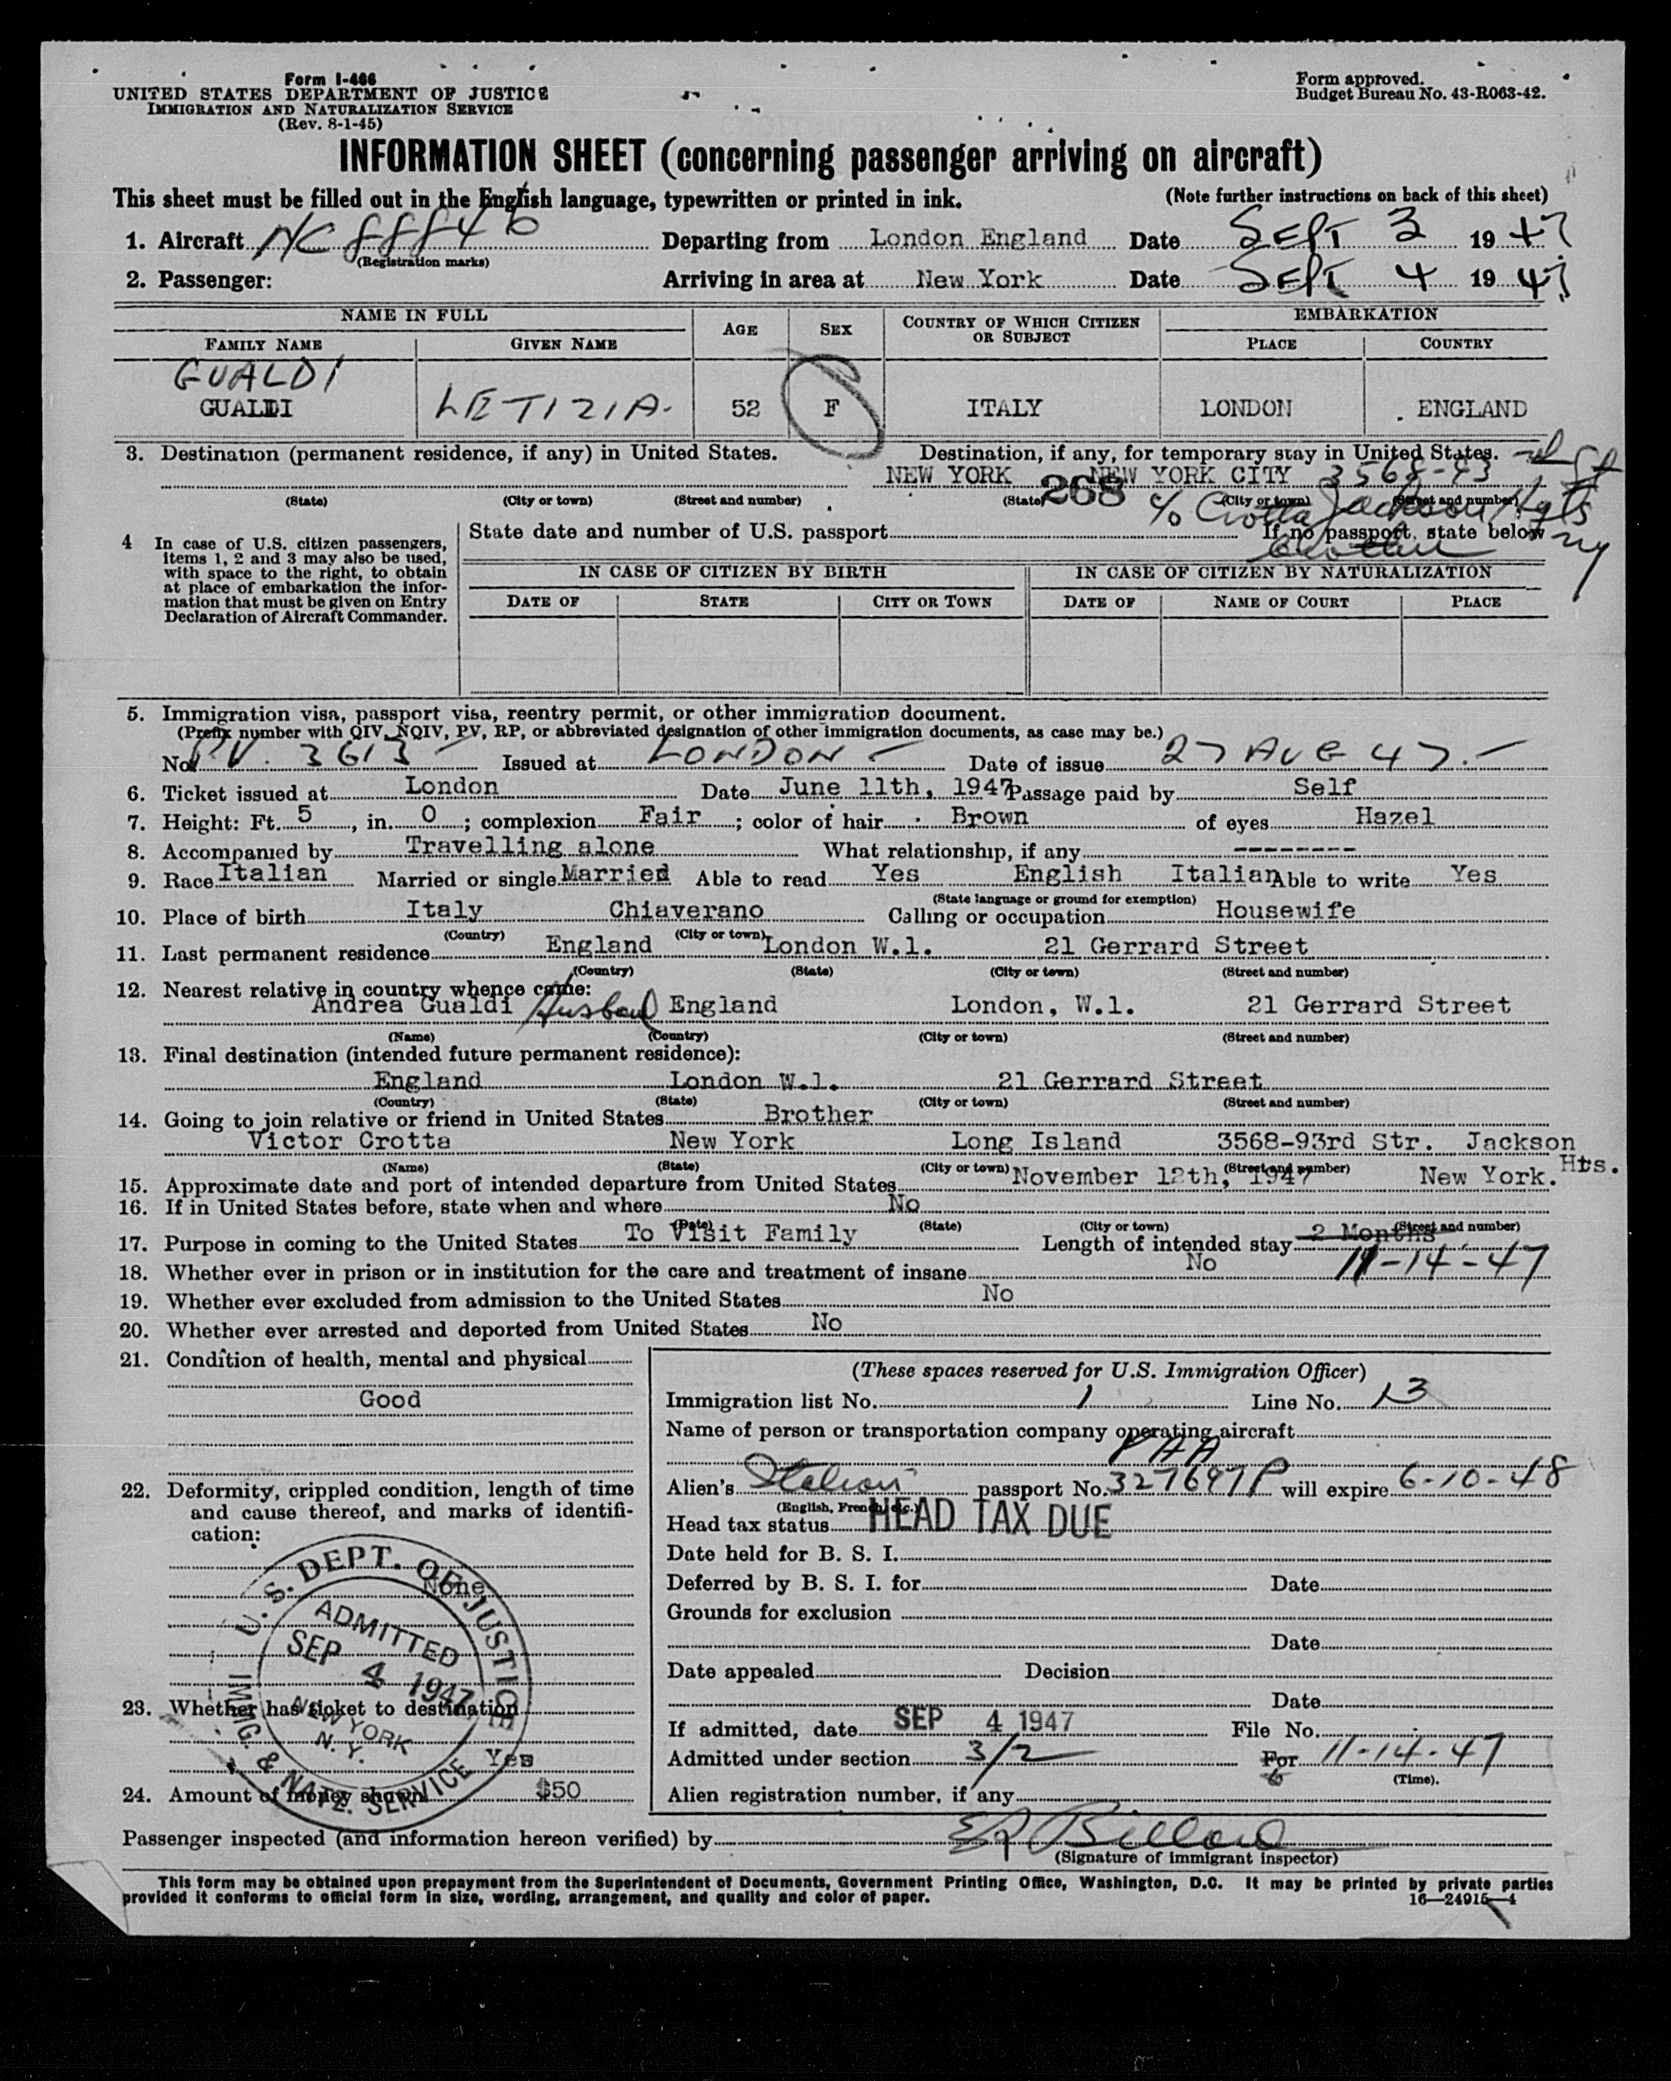 Form I-466
UNITED STATES DEPARTMENT OF JUSTICE
IMMIGRATION AND NATURALIZATION SERVICE
(Rev. 8-1-45)
Form approved.
Budget Bureau No. 43-R063-42.
INFORMATION SHEET (concerning passenger arriving on aircraft)
This sheet must be filled out in the English language, typewritten or printed in ink. (Note further instructions on back of this sheet)
1. Aircraft NC 88846 Departing from London England Date SEPT 3 1947
(Registration marks)
2. Passenger: Arriving in area at New York Date SEPT 4 1947
NAME IN FULL AGE SEX COUNTRY OF WHICH CITIZEN OR SUBJECT EMBARKATION
FAMILY NAME GIVEN NAME PLACE COUNTRY
GUALDI
GUALDI LETIZIA. 52 F ITALY LONDON . ENGLAND
3. Destination (permanent residence, if any) in United States. Destination, if any, for temporary stay in United States.
NEW YORK NEW YORK CITY 3568-93rd St
(State) (City or town) (Street and number) (State) (City or town) (Street and number)
268 c/o Crotta Jackson Hgts
Brother NY
4 In case of U.S. citizen passengers, items 1, 2 and 3 may also be used, with space to the right, to obtain at place of embarkation the information that must be given on Entry Declaration of Aircraft Commander.
State date and number of U.S. passport If no passport, state below
IN CASE OF CITIZEN BY BIRTH IN CASE OF CITIZEN BY NATURALIZATION
DATE OF STATE CITY OR TOWN DATE OF NAME OF COURT PLACE
5. Immigration visa, passport visa, reentry permit, or other immigration document.
(Prefix number with QIV, NQIV, PV, RP, or abbreviated designation of other immigration documents, as case may be.)
No. P.V. 3613 - Issued at LONDON - Date of issue 27 AUG 47.-
6. Ticket issued at London Date June 11th, 1947 Passage paid by Self
7. Height: Ft. 5, in. 0; complexion Fair; color of hair Brown of eyes Hazel
8. Accompanied by Travelling alone What relationship, if any --------
9. Race Italian Married or single Married Able to read Yes English Italian Able to write Yes
(State language or ground for exemption)
10. Place of birth Italy Chiaverano Calling or occupation Housewife
(Country) (City or town)
11. Last permanent residence England London W.1. 21 Gerrard Street
(Country) (State) (City or town) (Street and number)
12. Nearest relative in country whence came:
Andrea Gualdi Husband England London, W.1. 21 Gerrard Street
(Name) (Country) (City or town) (Street and number)
13. Final destination (intended future permanent residence):
England London W.1. 21 Gerrard Street
(Country) (State) (City or town) (Street and number)
14. Going to join relative or friend in United States Brother
Victor Crotta New York Long Island 3568-93rd Str. Jackson Hts.
(Name) (State) (City or town) (Street and number)
15. Approximate date and port of intended departure from United States November 12th, 1947 New York.
16. If in United States before, state when and where No
(Date) (State) (City or town) (Street and number)
17. Purpose in coming to the United States To Visit Family Length of intended stay 2 Months
11-14-47
18. Whether ever in prison or in institution for the care and treatment of insane No
19. Whether ever excluded from admission to the United States No
20. Whether ever arrested and deported from United States No
21. Condition of health, mental and physical
Good
22. Deformity, crippled condition, length of time and cause thereof, and marks of identification:
None
U.S. DEPT. OF JUSTICE
ADMITTED
SEP 4 1947
NEW YORK
N. Y.
IMMG. & NATZ. SERVICE
23. Whether has ticket to destination
Yes
24. Amount of money shown $50
(These spaces reserved for U.S. Immigration Officer)
Immigration list No. 1 Line No. 13
Name of person or transportation company operating aircraft
PAA
Alien's Italian passport No. 327697P will expire 6-10-48
(English, French, etc.)
Head tax status HEAD TAX DUE
Date held for B. S. I.
Deferred by B. S. I. for Date
Grounds for exclusion
Date
Date appealed Decision
Date
If admitted, date SEP 4 1947 File No.
Admitted under section 3/2 For 11-14-47
(Time).
Alien registration number, if any
Passenger inspected (and information hereon verified) by
(Signature of immigrant inspector)
This form may be obtained upon prepayment from the Superintendent of Documents, Government Printing Office, Washington, D.C. It may be printed by private parties
provided it conforms to official form in size, wording, arrangement, and quality and color of paper. 16—24915-4